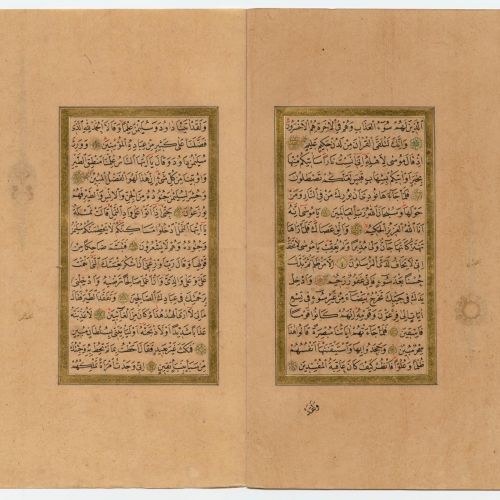 الذين لهم سوء العذاب وهم في الآخرة هم الأخسرون
وإنك لتلقى القرآن من لدن حكيم عليم
إذ قال موسى لأهله إني آنست نارا سآتيكم منها
بخبر أو آتيكم بشهاب قبس لعلكم تصطلون
فلما جاءها نودي أن بورك من في النار ومن
حولها وسبحان الله رب العالمين يا موسى إنه
أنا الله العزيز الحكيم وألق عصاك فلما رآها
تهتز كأنها جان ولى مدبرا ولم يعقب يا موسى لا تخف
إني لا يخاف لدي المرسلون إلا من ظلم ثم بدل
حسنا بعد سوء فإني غفور رحيم وأدخل
يدك في جيبك تخرج بيضاء من غير سوء في تسع
آيات إلى فرعون وقومه إنهم كانوا قوما
فاسقين فلما جاءتهم آياتنا مبصرة قالوا هذا
سحر مبين وجحدوا بها واستيقنتها أنفسهم
ظلما وعلوا فانظر كيف كان عاقبة المفسدين
ولقد
ولقد آتينا داود وسليمان علما وقالا الحمد لله الذي
فضلنا على كثير من عباده المؤمنين وورث
سليمان داود وقال يا أيها الناس علمنا منطق الطير
وأوتينا من كل شيء إن هذا لهو الفضل المبين
وحشر لسليمان جنوده من الجن والإنس والطير فهم
يوزعون حتى إذا أتوا على واد النمل قالت نملة
يا أيها النمل ادخلوا مساكنكم لا يحطمنكم سليمان
وجنوده وهم لا يشعرون فتبسم ضاحكا من
قولها وقال رب أوزعني أن أشكر نعمتك التي أنعمت
علي وعلى والدي وأن أعمل صالحا ترضاه وأدخلني
برحمتك في عبادك الصالحين وتفقد الطير فقال
ما لي لا أرى الهدهد أم كان من الغائبين لأعذبنه
عذابا شديدا أو لأذبحنه أو ليأتيني بسلطان مبين
فمكث غير بعيد فقال أحطت بما لم تحط به وجئتك
من سبإ بنبإ يقين إني وجدت امرأة تملكهم